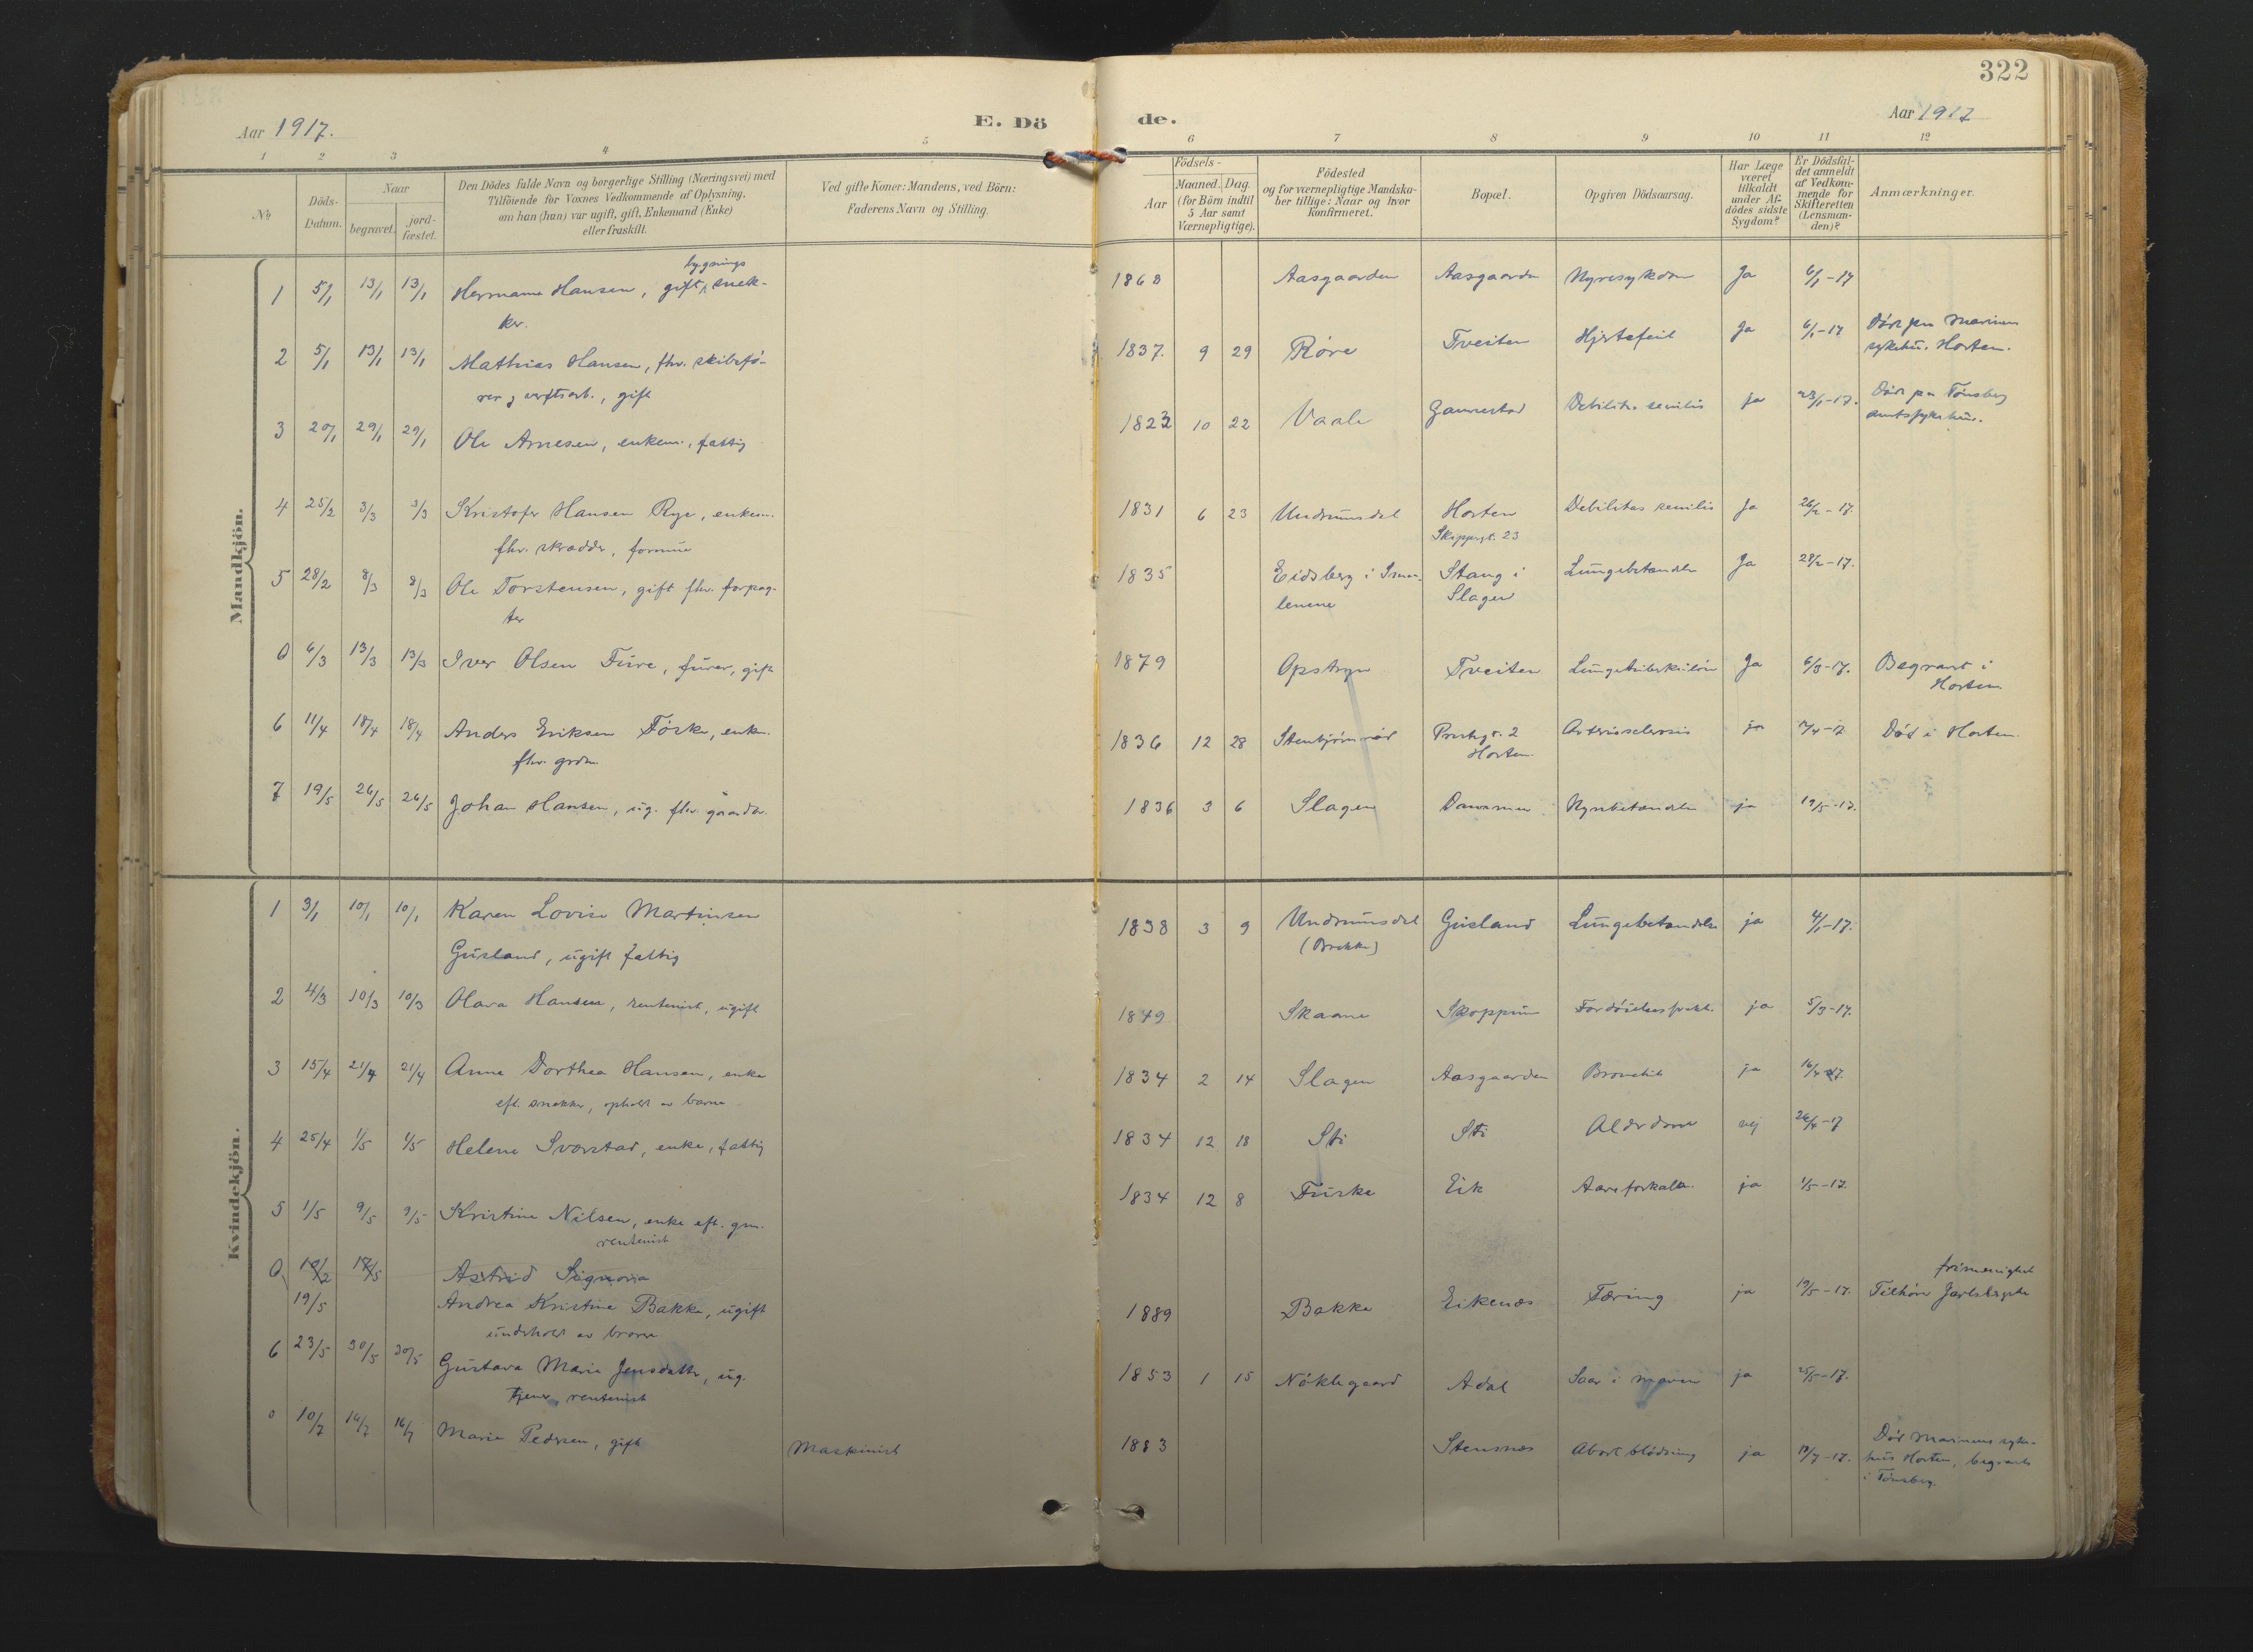 322
Aar 1917.
E. Dö de.
Aar 1917
1 2 3 4 5 6 7 8 9 10 11 12
№
Döds-
Datum.
Naar
begravet.
jord-
fæstet.
Den Dödes fulde Navn og borgerlige Stilling (Næringsvei) med
Tilföiende for Voxnes Vedkommende af Oplysning,
om han (hun) var ugift, gift, Enkemand (Enke)
eller fraskilt.
Ved gifte Koner: Mandens, ved Börn:
Faderens Navn og Stilling.
Födsels-
Aar
Maaned. Dag.
(for Börn indtil
5 Aar samt
Værnepligtige).
Födested
og for værnepligtige Mandska-
ber tillige: Naar og hvor
konfirmeret.
Bopæl.
Opgiven Dödsaarsag.
Har Læge
været
tilkaldt
under Af-
dödes sidste
Sygdom?
Er Dödsfal-
det anmeldt
af Vedkom-
mende for
Skifteretten
(Lensman-
den)?
Anmærkninger.
Mandkjön.
bygnings
1 5/1 13/1 13/1 Hermann Hansen, gift, snek- 1868 Aasgaarden Aasgaarden Nyresykdom Ja 6/1-17
ker.
2 5/1 13/1 13/1 Mathias Hansen, fhv. skibsfö- 1837. 9 29 Röre Tveiten Hjertefeil Ja 6/1-17 Död paa Marinens
rer & verftsarb., gift sykehus. Horten.
3 20/1 29/1 29/1 Ole Arnesen, enkem., fattig 1823 10 22 Vaale Gannestad Debilitas senilis ja 23/1-17. Död paa Tönsberg
amtssykehus.
4 25/2 3/3 3/3 Kristofer Hansen Rye, enkem. 1831 6 23 Undrumsdal Horten Debilitas senilis Ja 26/2-17.
fhv. skrædder, formue Skippergt. 23
5 28/2 8/3 8/3 Ole Torstensen, gift fhv. forpag- 1835 Eidsberg i Smaa- Stang i Lungebetændelse Ja 28/2-17.
ter lenene Slagen
0 6/3 13/3 13/3 Iver Olsen Fure, furer, gift 1879 Opstryn Tveiten Lungetuberkulose Ja 6/3-17. Begravet i
Horten
6 11/4 18/4 18/4 Anders Eriksen Föske, enkem. 1836 12 28 Stenbjörnröd 2 Arteriosclerosis ja Död i Horten.
fhv. grdm. Horten
7 19/5 26/5 26/5 Johan Hansen, ug. fhv. gaardbr. 1836 3 6 Slagen Nyrebetændelse ja 19/5-17.
Kvindekjön.
1 3/1 10/1 10/1 Karen Lovise Martinsen 1838 3 9 Undrumsdal Gusland Lungebetændelse ja 4/1-17.
Gusland, ugift fattig (Brekke)
2 4/3 10/3 10/3 Olava Hansen, rentenist, ugift 1849 Skaane Skoppum ja 5/3-17.
3 15/4 21/4 21/4 Anne Dorthea Hansen, enke 1834 2 14 Slagen Aasgaarden Bronchit ja 16/4 17.
eft. snekker, opholdt av barna
4 25/4 1/5 1/5 Helene Sverstad, enke, fattig 1834 12 18 Sti Sti Alderdom nej 26/4-17
5 1/5 9/5 9/5 Kristine Nilsen, enke eft. gm. 1834 12 8 Fuske Eik Aareforkalkn. ja 1/5-17.
rentenist
0 18/2 18/5 Astrid Signora frimenighet
19/5 Andrea Kristine Bakke, ugift 1889 Bakke Eikenes Tæring ja 19/5-17. Tilhörer Jarlsbergske
underholdt av broren
6 23/5 30/5 30/5 Gustava Marie Jensdatter, ug. 1853 1 15 Nöklegaard Adal Saar i maven ja 25/5-17.
tjener, rentenist
0 10/7 16/7 16/7 Marie Pedersen, gift Maskinist 1883 Stensnes Abort blödning ja 10/7-17. Död Marinens syke-
hus Horten, begravet
i Tönsberg.